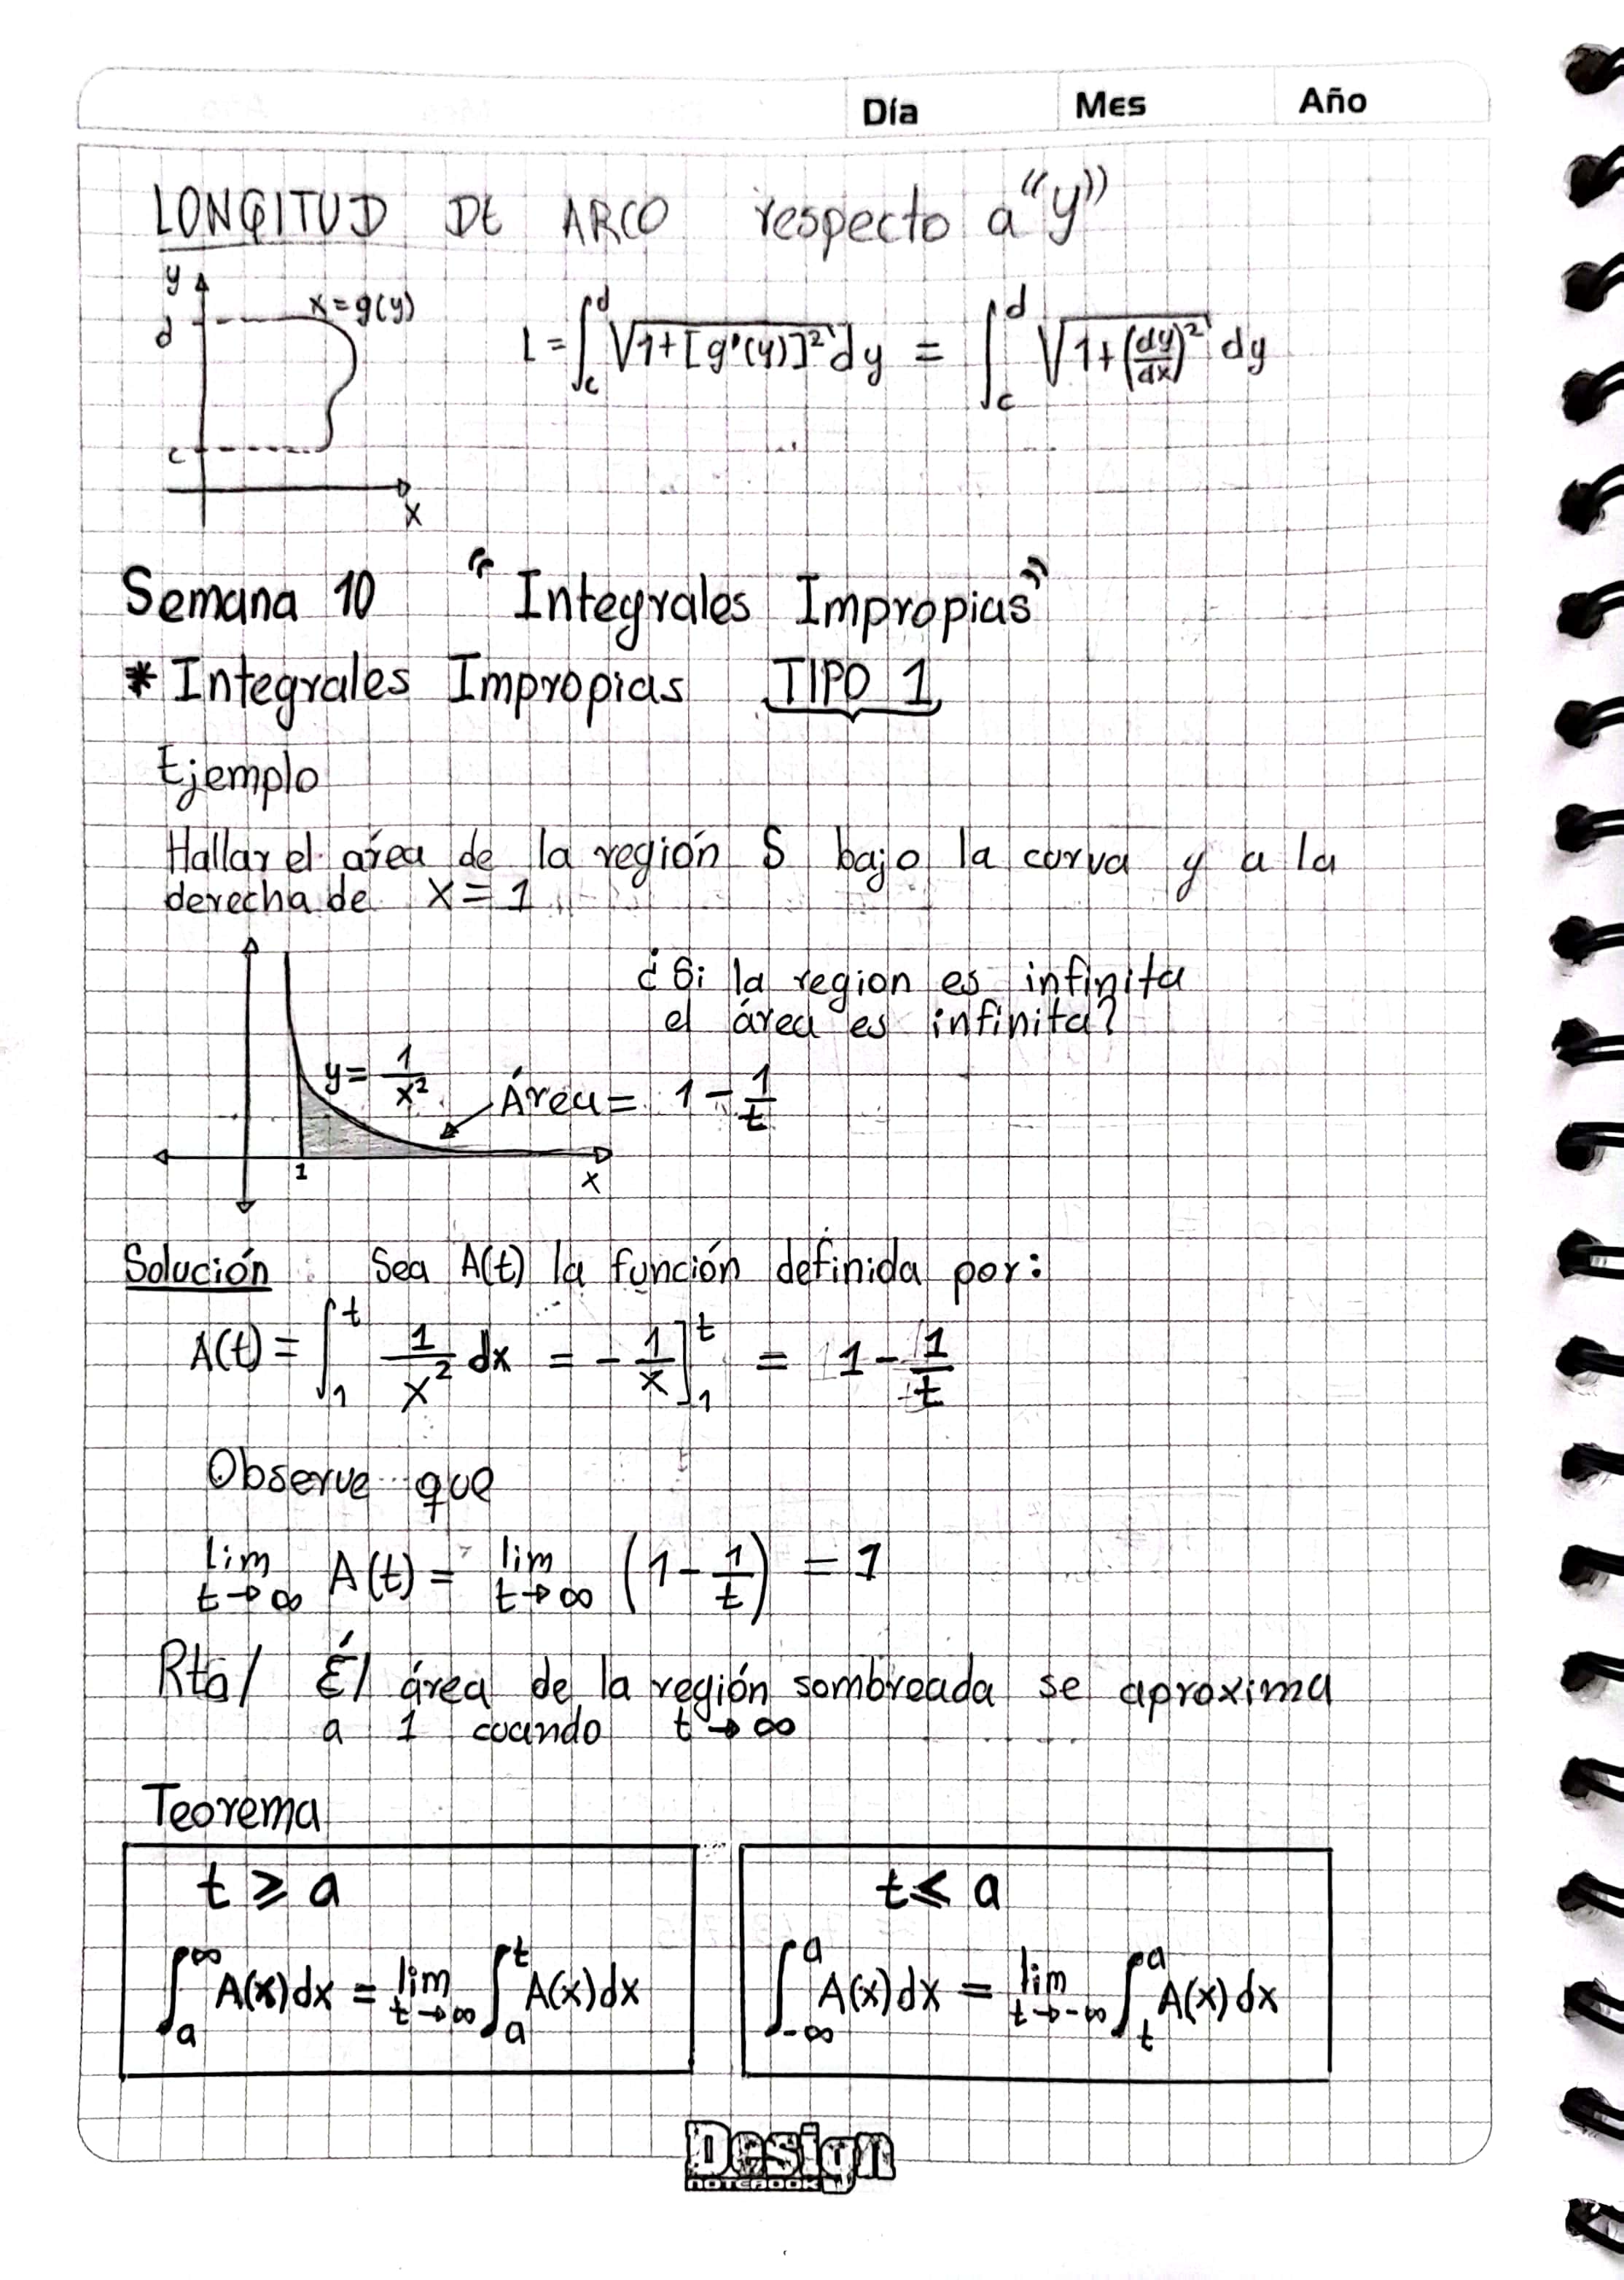 Día Mes Año
LONGITUD DE ARCO respecto a "y"
y
d
x = g(y)
L = ∫_c^d √(1 + [g'(y)]²) dy = ∫_c^d √(1 + (dy/dx)²) dy
c
x
Semana 10 "Integrales Impropias"
* Integrales Impropias TIPO 1
Ejemplo
Hallar el área de la región S bajo la curva y a la
derecha de x = 1
¿Si la region es infinita
el área es infinita?
y = 1/x²
Área = 1 - 1/t
1
x
Solución Sea A(t) la función definida por:
A(t) = ∫_1^t 1/x² dx = - 1/x ]_1^t = 1 - 1/t
Observe que
lim t→∞ A(t) = lim t→∞ (1 - 1/t) = 1
Rta/ Él área de la región sombreada se aproxima
a 1 cuando t → ∞
Teorema
t ⩾ a
∫_a^∞ A(x) dx = lim t→∞ ∫_a^t A(x) dx
t ⩽ a
∫_-∞^a A(x) dx = lim t→-∞ ∫_t^a A(x) dx
Design
NOTEBOOK